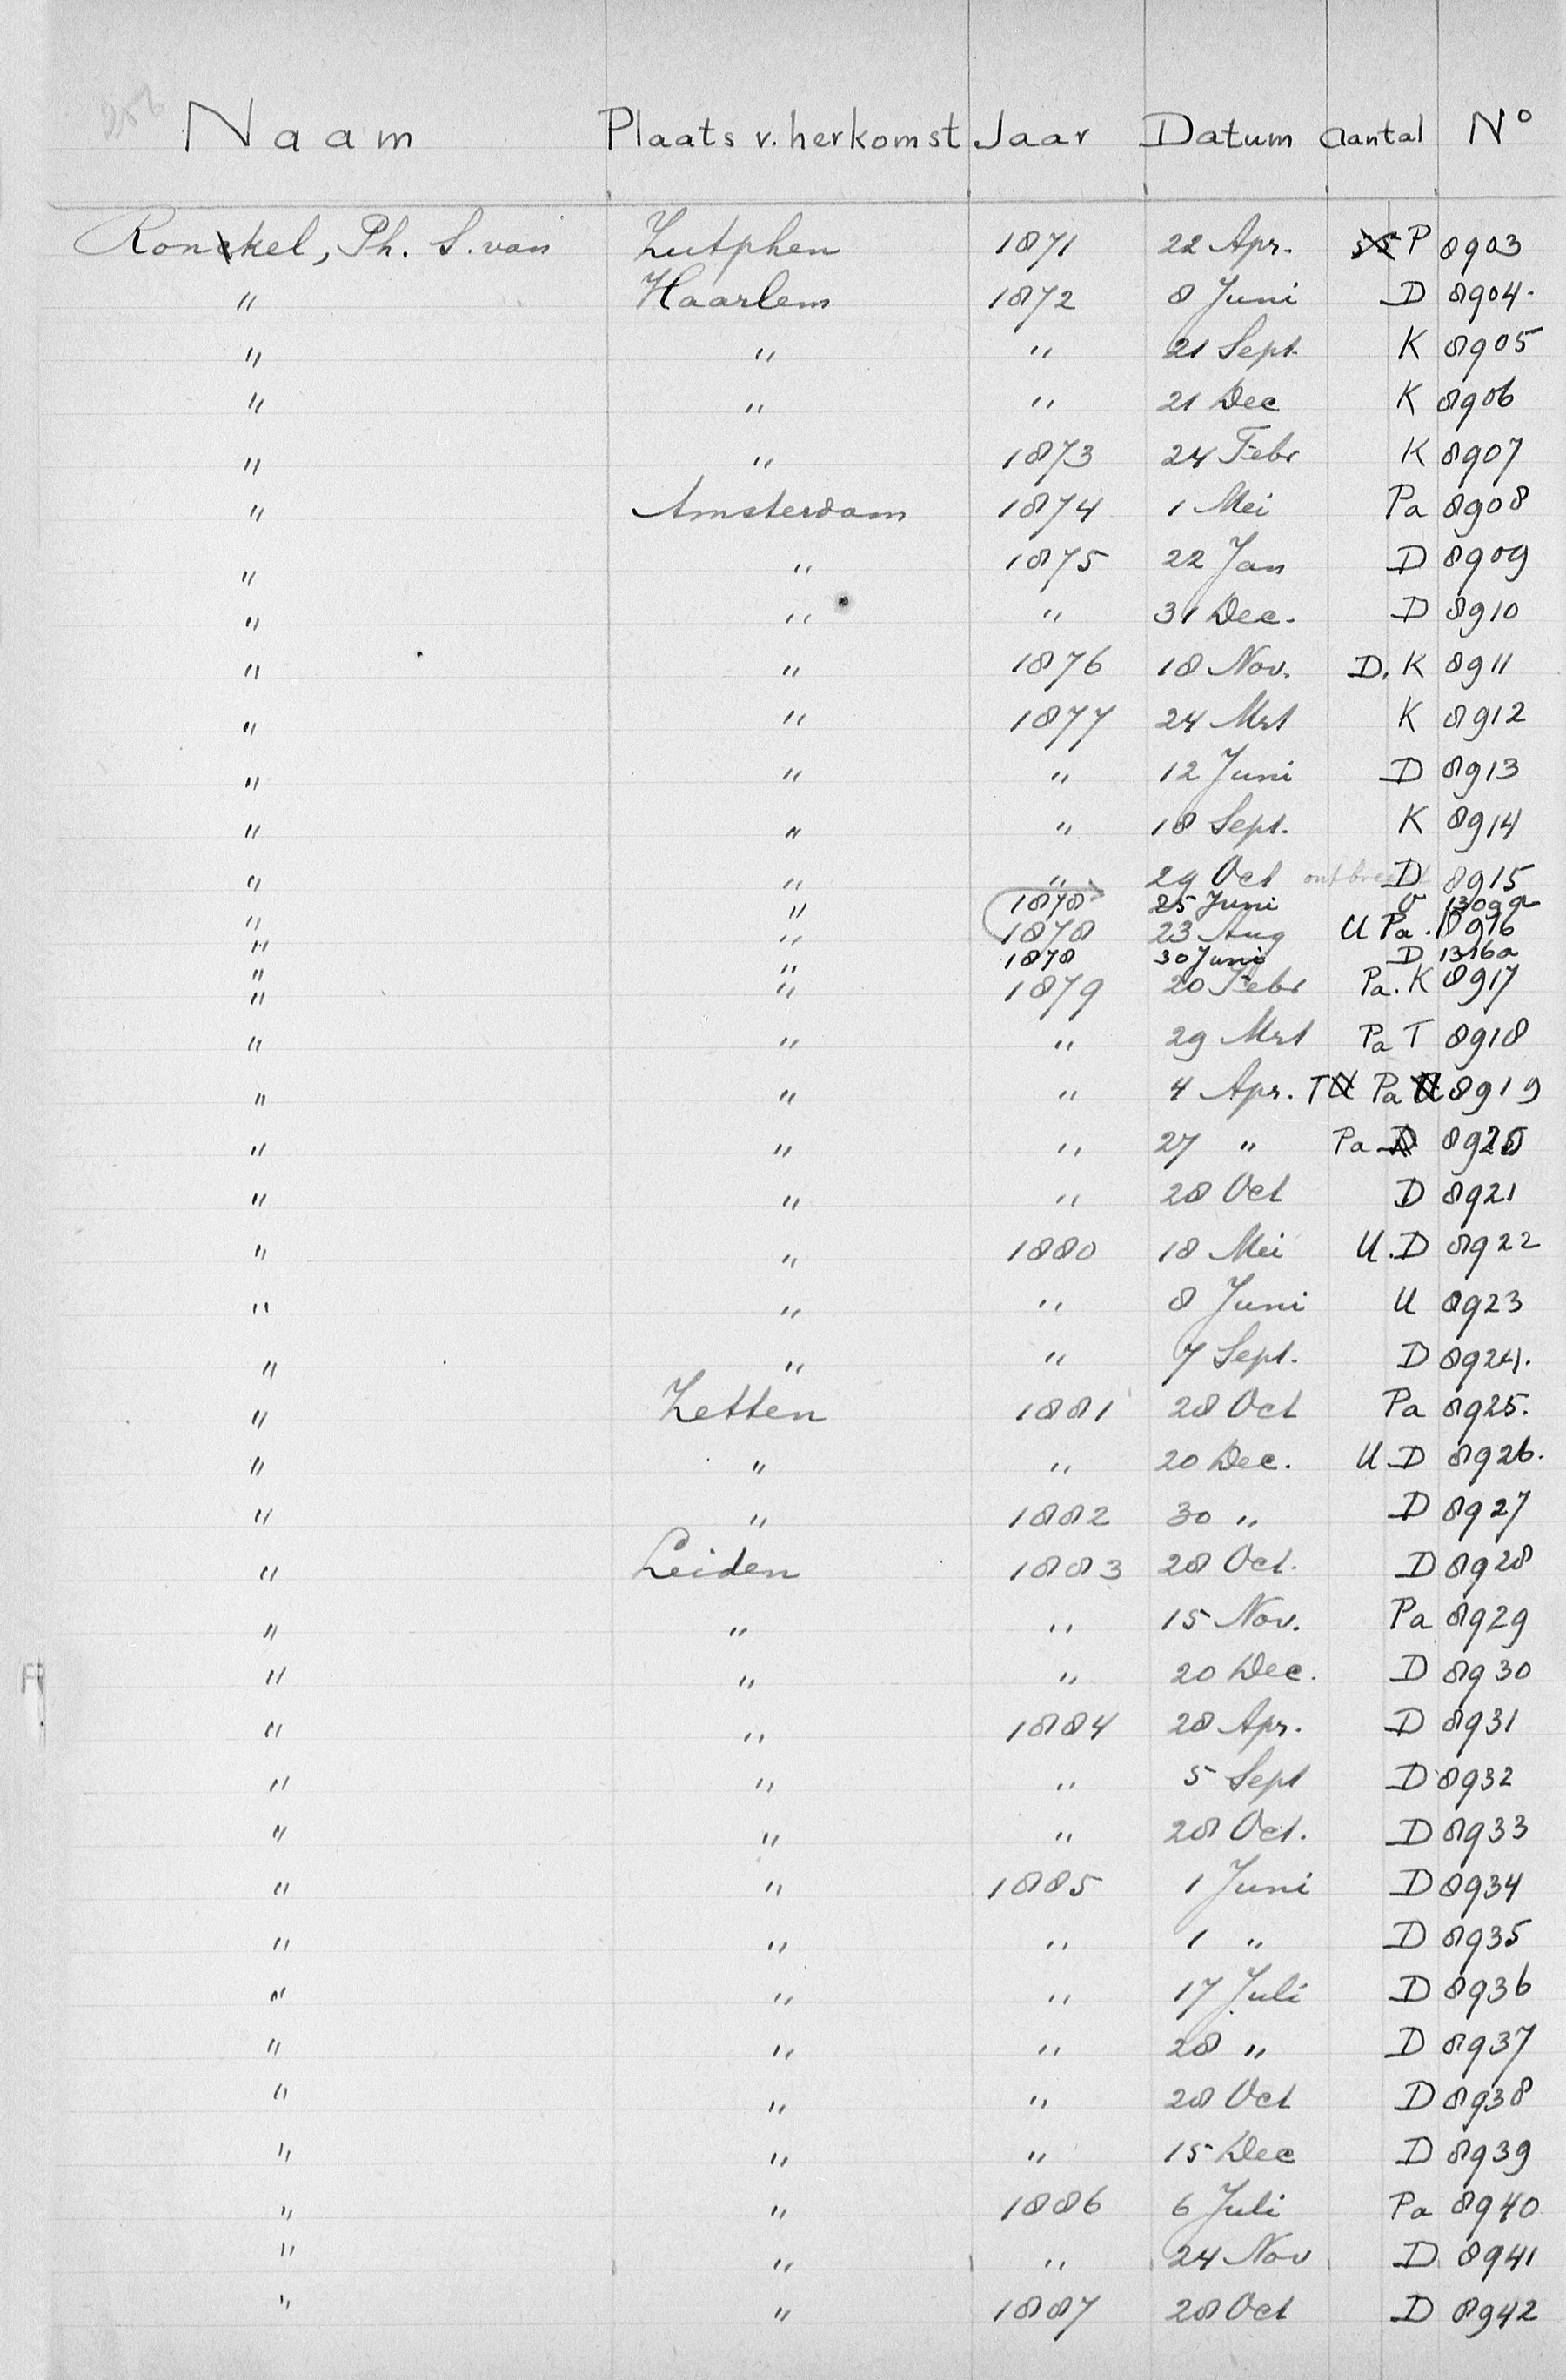 Naam Plaats v. herkomst Jaar Datum Aantal No
Ronckel, Ph. S. van Zutphen 1871 22 Apr. P 8903
" Haarlem 1872 8 Juni D 8904.
" " " 21 Sept. K 8905
" " " 21 Dec K 8906
" " 1873 24 Febr K 8907
" Amsterdam 1874 1 Mei Pa 8908
" " 1875 22 Jan D 8909
" " " 31 Dec. D 8910
" " 1876 18 Nov. D. K 8911
" " 1877 24 Mrt K 8912
" " " 12 Juni D 8913
" " " 18 Sept. K 8914
" " " 29 Oct ontbreekt D 8915
" " 1878 25 Juni 1309a
" " 1878 23 Aug U Pa. 8916
" " 1878 30 Juni D 1316a
" " 1879 20 Febr Pa. K 8917
" " " 29 Mrt Pa T 8918
" " " 4 Apr. T Pa 8919
" " " 27 " Pa D 8920
" " " 28 Oct D 8921
" " 1880 18 Mei U. D 8922
" " " 8 Juni U 8923
" " " 7 Sept. D 8924.
" Zetten 1881 28 Oct Pa 8925.
" " " 20 Dec. U D 8926.
" " 1882 30 " D 8927
" Leiden 1883 28 Oct. D 8928
" " " 15 Nov. Pa 8929
" " " 20 Dec. D 8930
" " 1884 28 Apr. D 8931
" " " 5 Sept D 8932
" " " 28 Oct. D 8933
" " 1885 1 Juni D 8934
" " " 1 " D 8935
" " " 17 Juli D 8936
" " " 28 " D 8937
" " " 28 Oct D 8938
" " " 15 Dec D 8939
" " 1886 6 Juli Pa 8940
" " " 24 Nov D 8941
" " 1887 28 Oct D 8942